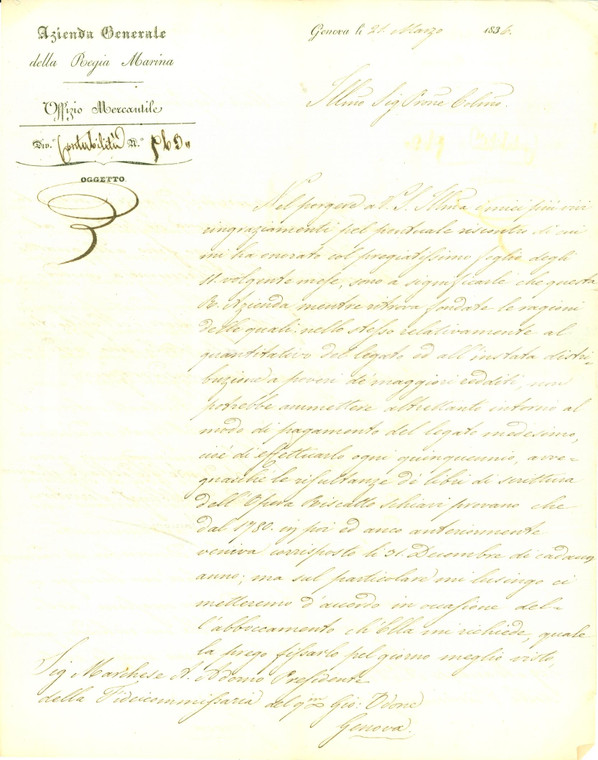 Azienda Generale
della Regia Marina
Uffizio Mercantile
Div.e Contabilità N.o
OGGETTO
Genova li 21 Marzo 1836.
Illmo Sig Prone Colmo.
Nel porgere a V. S. Illma i miei più vivi
ringraziamenti pel puntuale riscontro di cui
mi ha onorato col pregiatissimo foglio degli
11. volgente mese, sono a significarle che questa
R. Azienda mentre ritrova fondate le ragioni
dedotte nello stesso relativamente al
quantitativo del legato ed all'instata distri-
buzione a poveri de' maggiori redditi, non
potrebbe ammettere altrettanto intorno al
modo di pagamento del legato medesimo,
cioè di effettuarlo ogni quinquennio, avve-
gnacchè le risultanze de' libri di scrittura
dell'Opera Riscatto Schiavi provano che
dal 1780. in poi ed anco anteriormente
veniva corrisposto li 31. Decembre di cadaun
anno; ma sul particolare mi lusingo ci
metteremo d'accordo in occasione del-
l'abboccamento ch'Ella mi richiede, quale
la prego fissarlo pel giorno meglio visto,
Sig Marchese A. Adorno Presidente
della Fidecommissaria del qm Gio:
Genova.